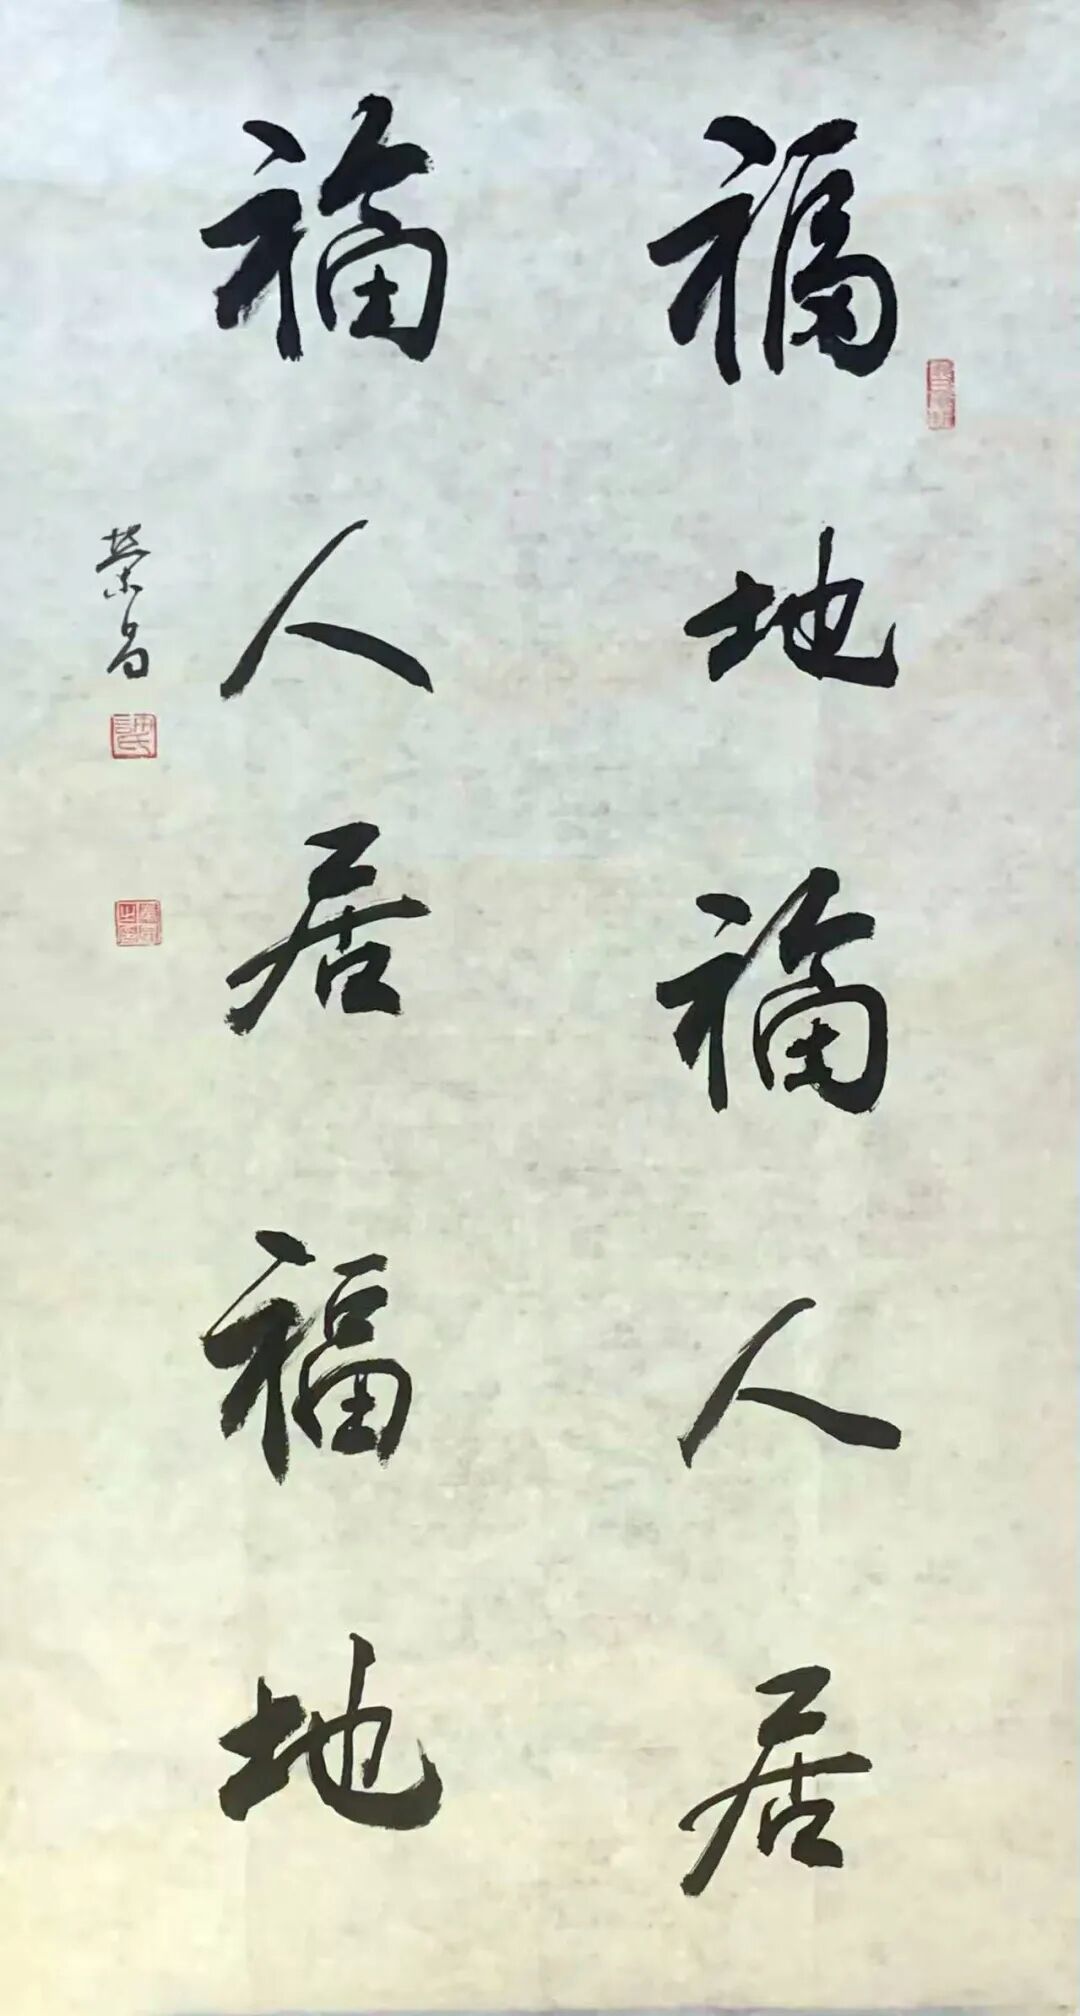 福地福人居
福人居福地
荣昌